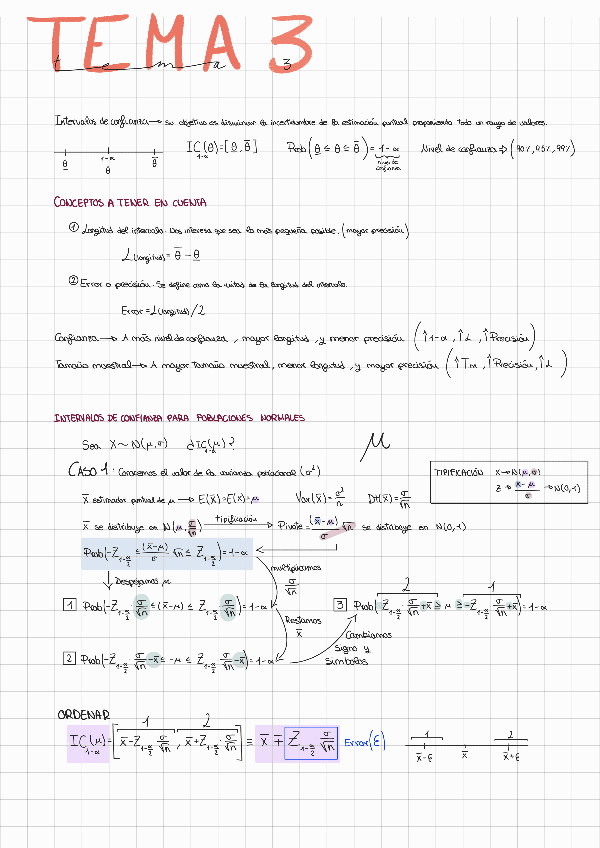 TEMA 3
tema 3
Intervalos de confianza → Su objetivo es disminuir la incertidumbre de la estimación puntual proponiendo todo un rango de valores.
θ̲ 1-α θ θ̅ IC₁₋α(θ)=[θ̲, θ̅] Prob(θ̲ ≤ θ ≤ θ̅)=1-α Nivel de confianza ⇒ (90%, 95%, 99%)
nivel de confianza
CONCEPTOS A TENER EN CUENTA
① Longitud del intervalo. Nos interesa que sea la más pequeña posible. (mayor precisión)
L(longitud)= θ̅ - θ̲
② Error o precisión. Se define como la mitad de la longitud del intervalo.
Error = L(longitud)/2
Confianza → A más nivel de confianza, mayor longitud, y menor precisión (↑1-α, ↑L, ↑Precisión)
Tamaño muestral → A mayor tamaño muestral, menor longitud, y mayor precisión (↑Tm, ↑Precisión, ↑L)
INTERVALOS DE CONFIANZA PARA POBLACIONES NORMALES
Sea X∼N(μ,σ) ¿IC₁₋α(μ)? μ
CASO 1: Conocemos el valor de la varianza poblacional (σ²)
TIPIFICACIÓN X→N(μ,σ)
Z → (X-μ)/σ → N(0,1)
x̅ estimador puntual de μ → E(x̅)=E(x)=μ Var(x̅)=σ²/n Dt(x̅)=σ/√n
x̅ se distribuye en N(μ, σ/√n) tipificación → Pivote=(x̅-μ)/σ √n se distribuye en N(0,1)
Prob(-Z₁₋α/₂ ≤ (x̅-μ)/σ √n ≤ Z₁₋α/₂)=1-α
multiplicamos σ/√n
↓ Despejamos μ
1 Prob(-Z₁₋α/₂ · σ/√n ≤ (x̅-μ) ≤ Z₁₋α/₂ · σ/√n)=1-α
Restamos x̅
2 1
3 Prob(Z₁₋α/₂ · σ/√n + x̅ ≥ μ ≥ -Z₁₋α/₂ · σ/√n + x̅)=1-α
Cambiamos signo y símbolos
2 Prob(-Z₁₋α/₂ · σ/√n - x̅ ≤ -μ ≤ Z₁₋α/₂ · σ/√n - x̅)=1-α
ORDENAR
1 2
IC₁₋α(μ)=[x̅-Z₁₋α/₂ σ/√n, x̅+Z₁₋α/₂ · σ/√n] ≡ x̅ ∓ Z₁₋α/₂ σ/√n Error(ε)
1 2
x̅-ε x̅ x̅+ε